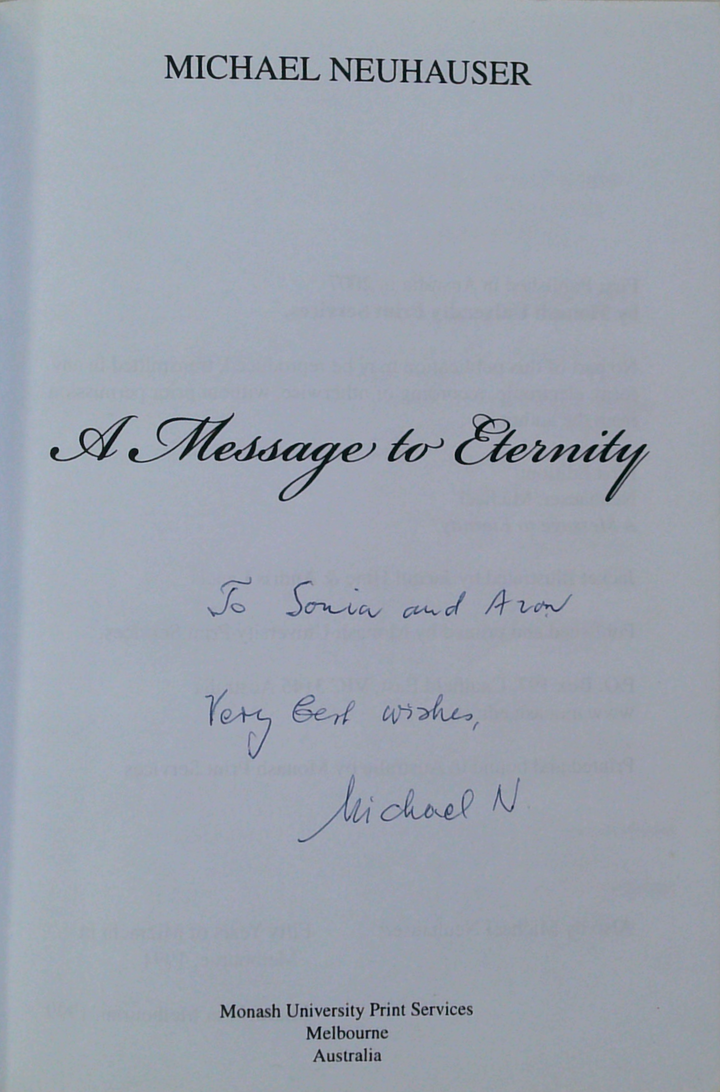 MICHAEL NEUHAUSER
A Message to Eternity
To Sonia and Aron
Very best wishes,
Michael N.
Monash University Print Services
Melbourne
Australia